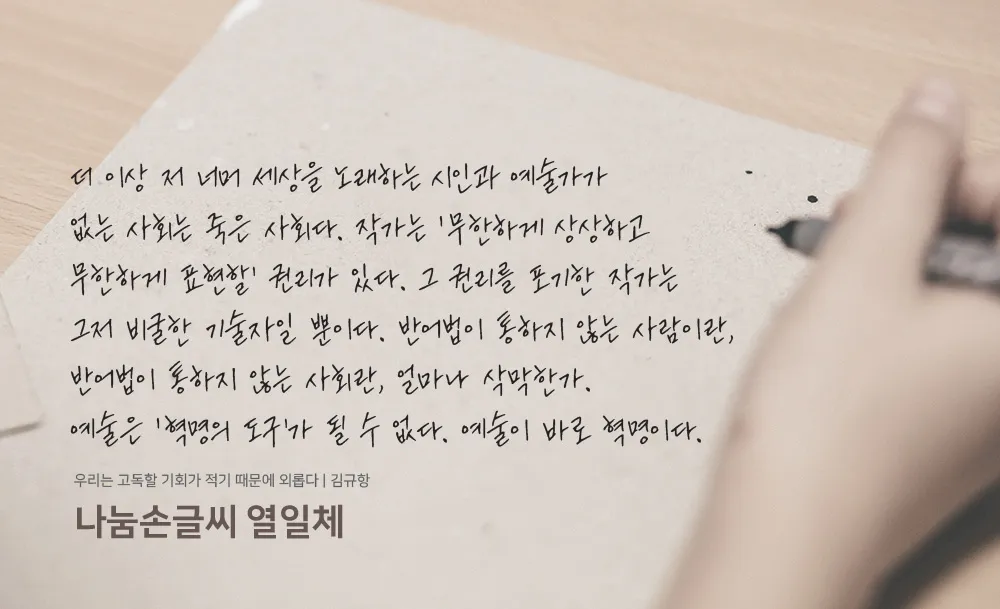 더 이상 저 너머 세상을 노래하는 시인과 예술가가
없는 사회는 죽은 사회다. 작가는 '무한하게 상상하고
무한하게 표현할' 권리가 있다. 그 권리를 포기한 작가는
그저 비굴한 기술자일 뿐이다. 반어법이 통하지 않는 사람이란,
반어법이 통하지 않는 사회란, 얼마나 삭막한가.
예술은 '혁명의 도구'가 될 수 없다. 예술이 바로 혁명이다.
우리는 고독할 기회가 적기 때문에 외롭다 | 김규항
나눔손글씨 열일체